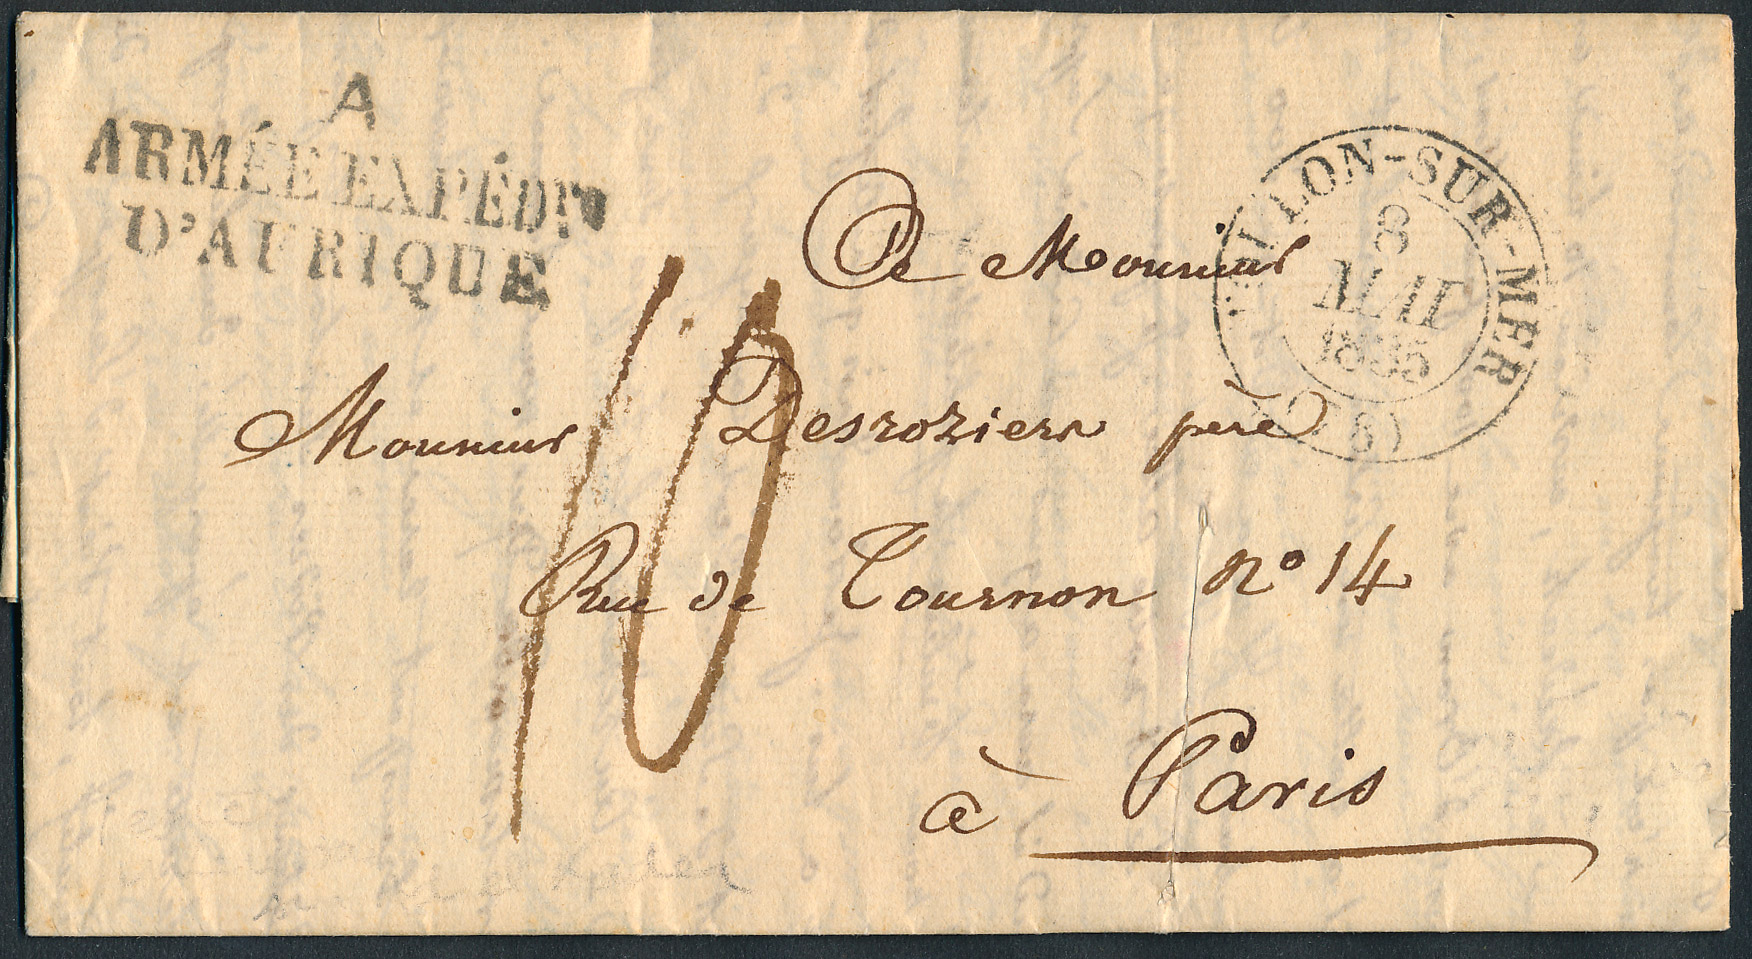 A
ARMÉE EXPÉDNO
D'AFRIQUE
TOULON-SUR-MER
8
MAI
1835
(78)
10
A Monsieur
Monsieur Desroziers père
Rue de Tournon no 14
à Paris